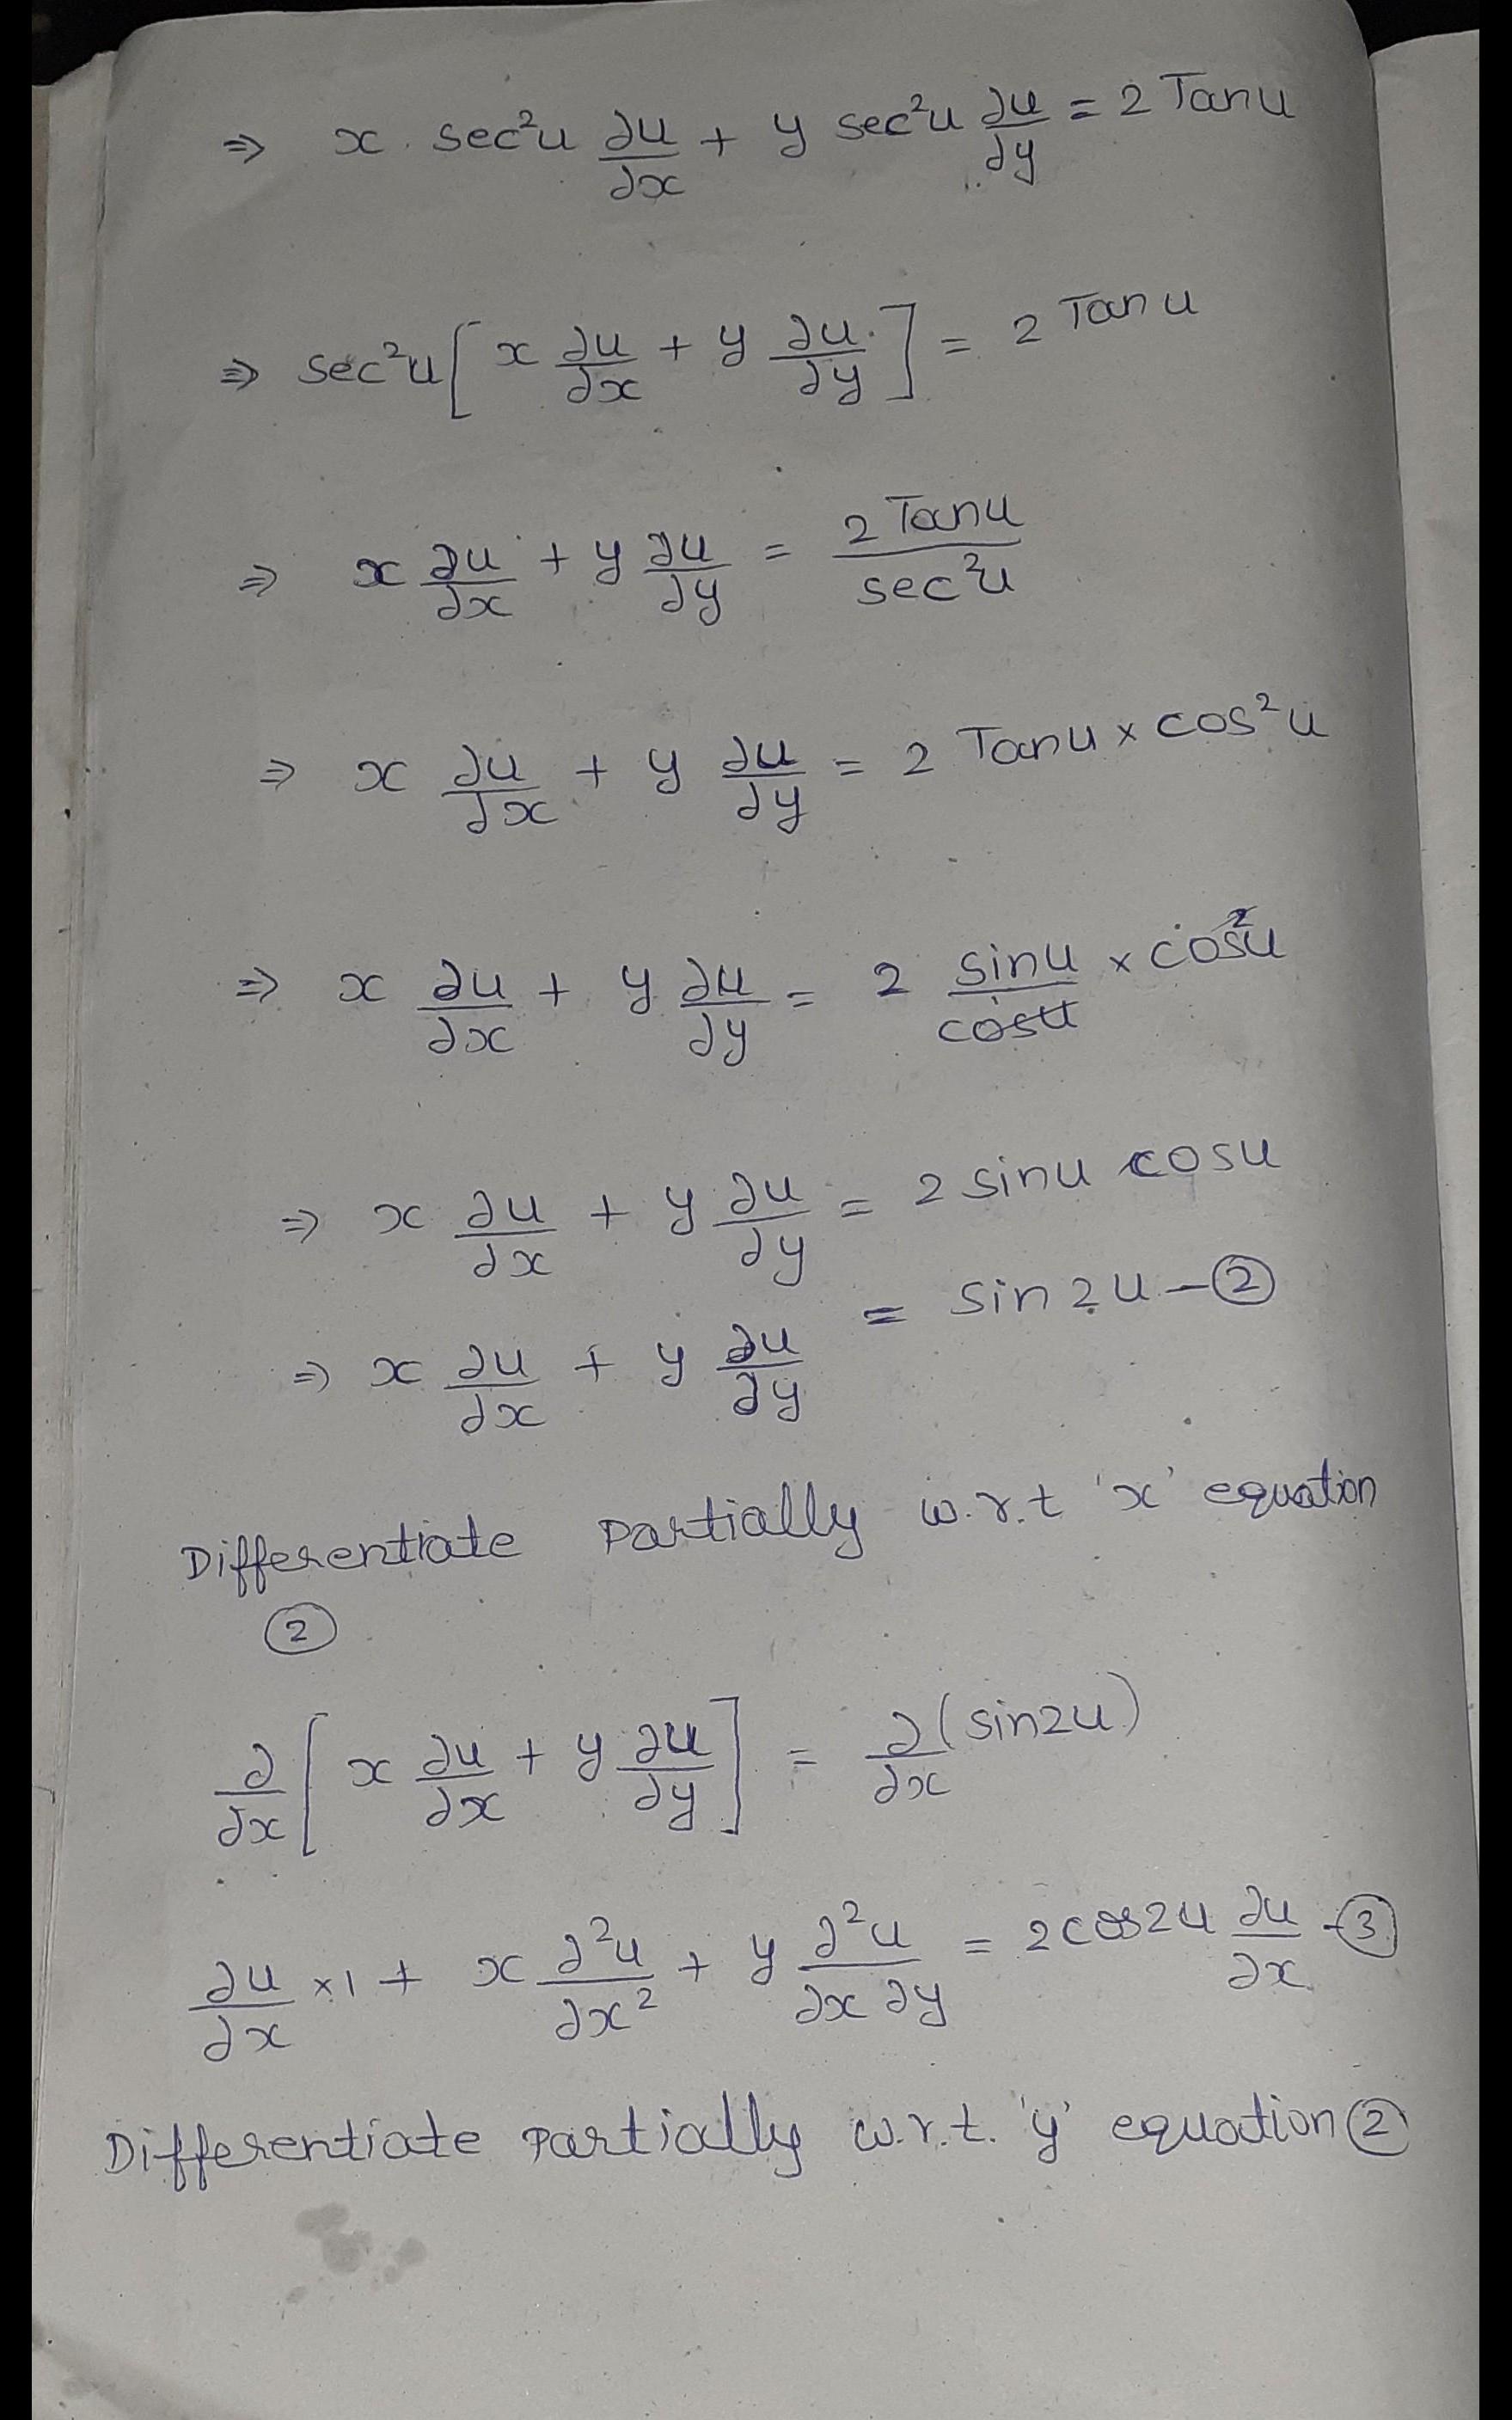 ⇒ x . sec²u ∂u/∂x + y sec²u ∂u/∂y = 2 Tanu
⇒ sec²u [ x ∂u/∂x + y ∂u/∂y ] = 2 Tan u
⇒ x ∂u/∂x + y ∂u/∂y = 2 Tanu / sec²u
⇒ x ∂u/∂x + y ∂u/∂y = 2 Tanu × cos²u
⇒ x ∂u/∂x + y ∂u/∂y = 2 sinu/cosu × cos²u
⇒ x ∂u/∂x + y ∂u/∂y = 2 sinu cosu
⇒ x ∂u/∂x + y ∂u/∂y = sin2u - ②
Differentiate Partially w.r.t 'x' equation
②
∂/∂x [ x ∂u/∂x + y ∂u/∂y ] = ∂/∂x (sin2u)
∂u/∂x ×1 + x ∂²u/∂x² + y ∂²u/∂x∂y = 2cos2u ∂u/∂x - ③
Differentiate Partially w.r.t. 'y' equation ②